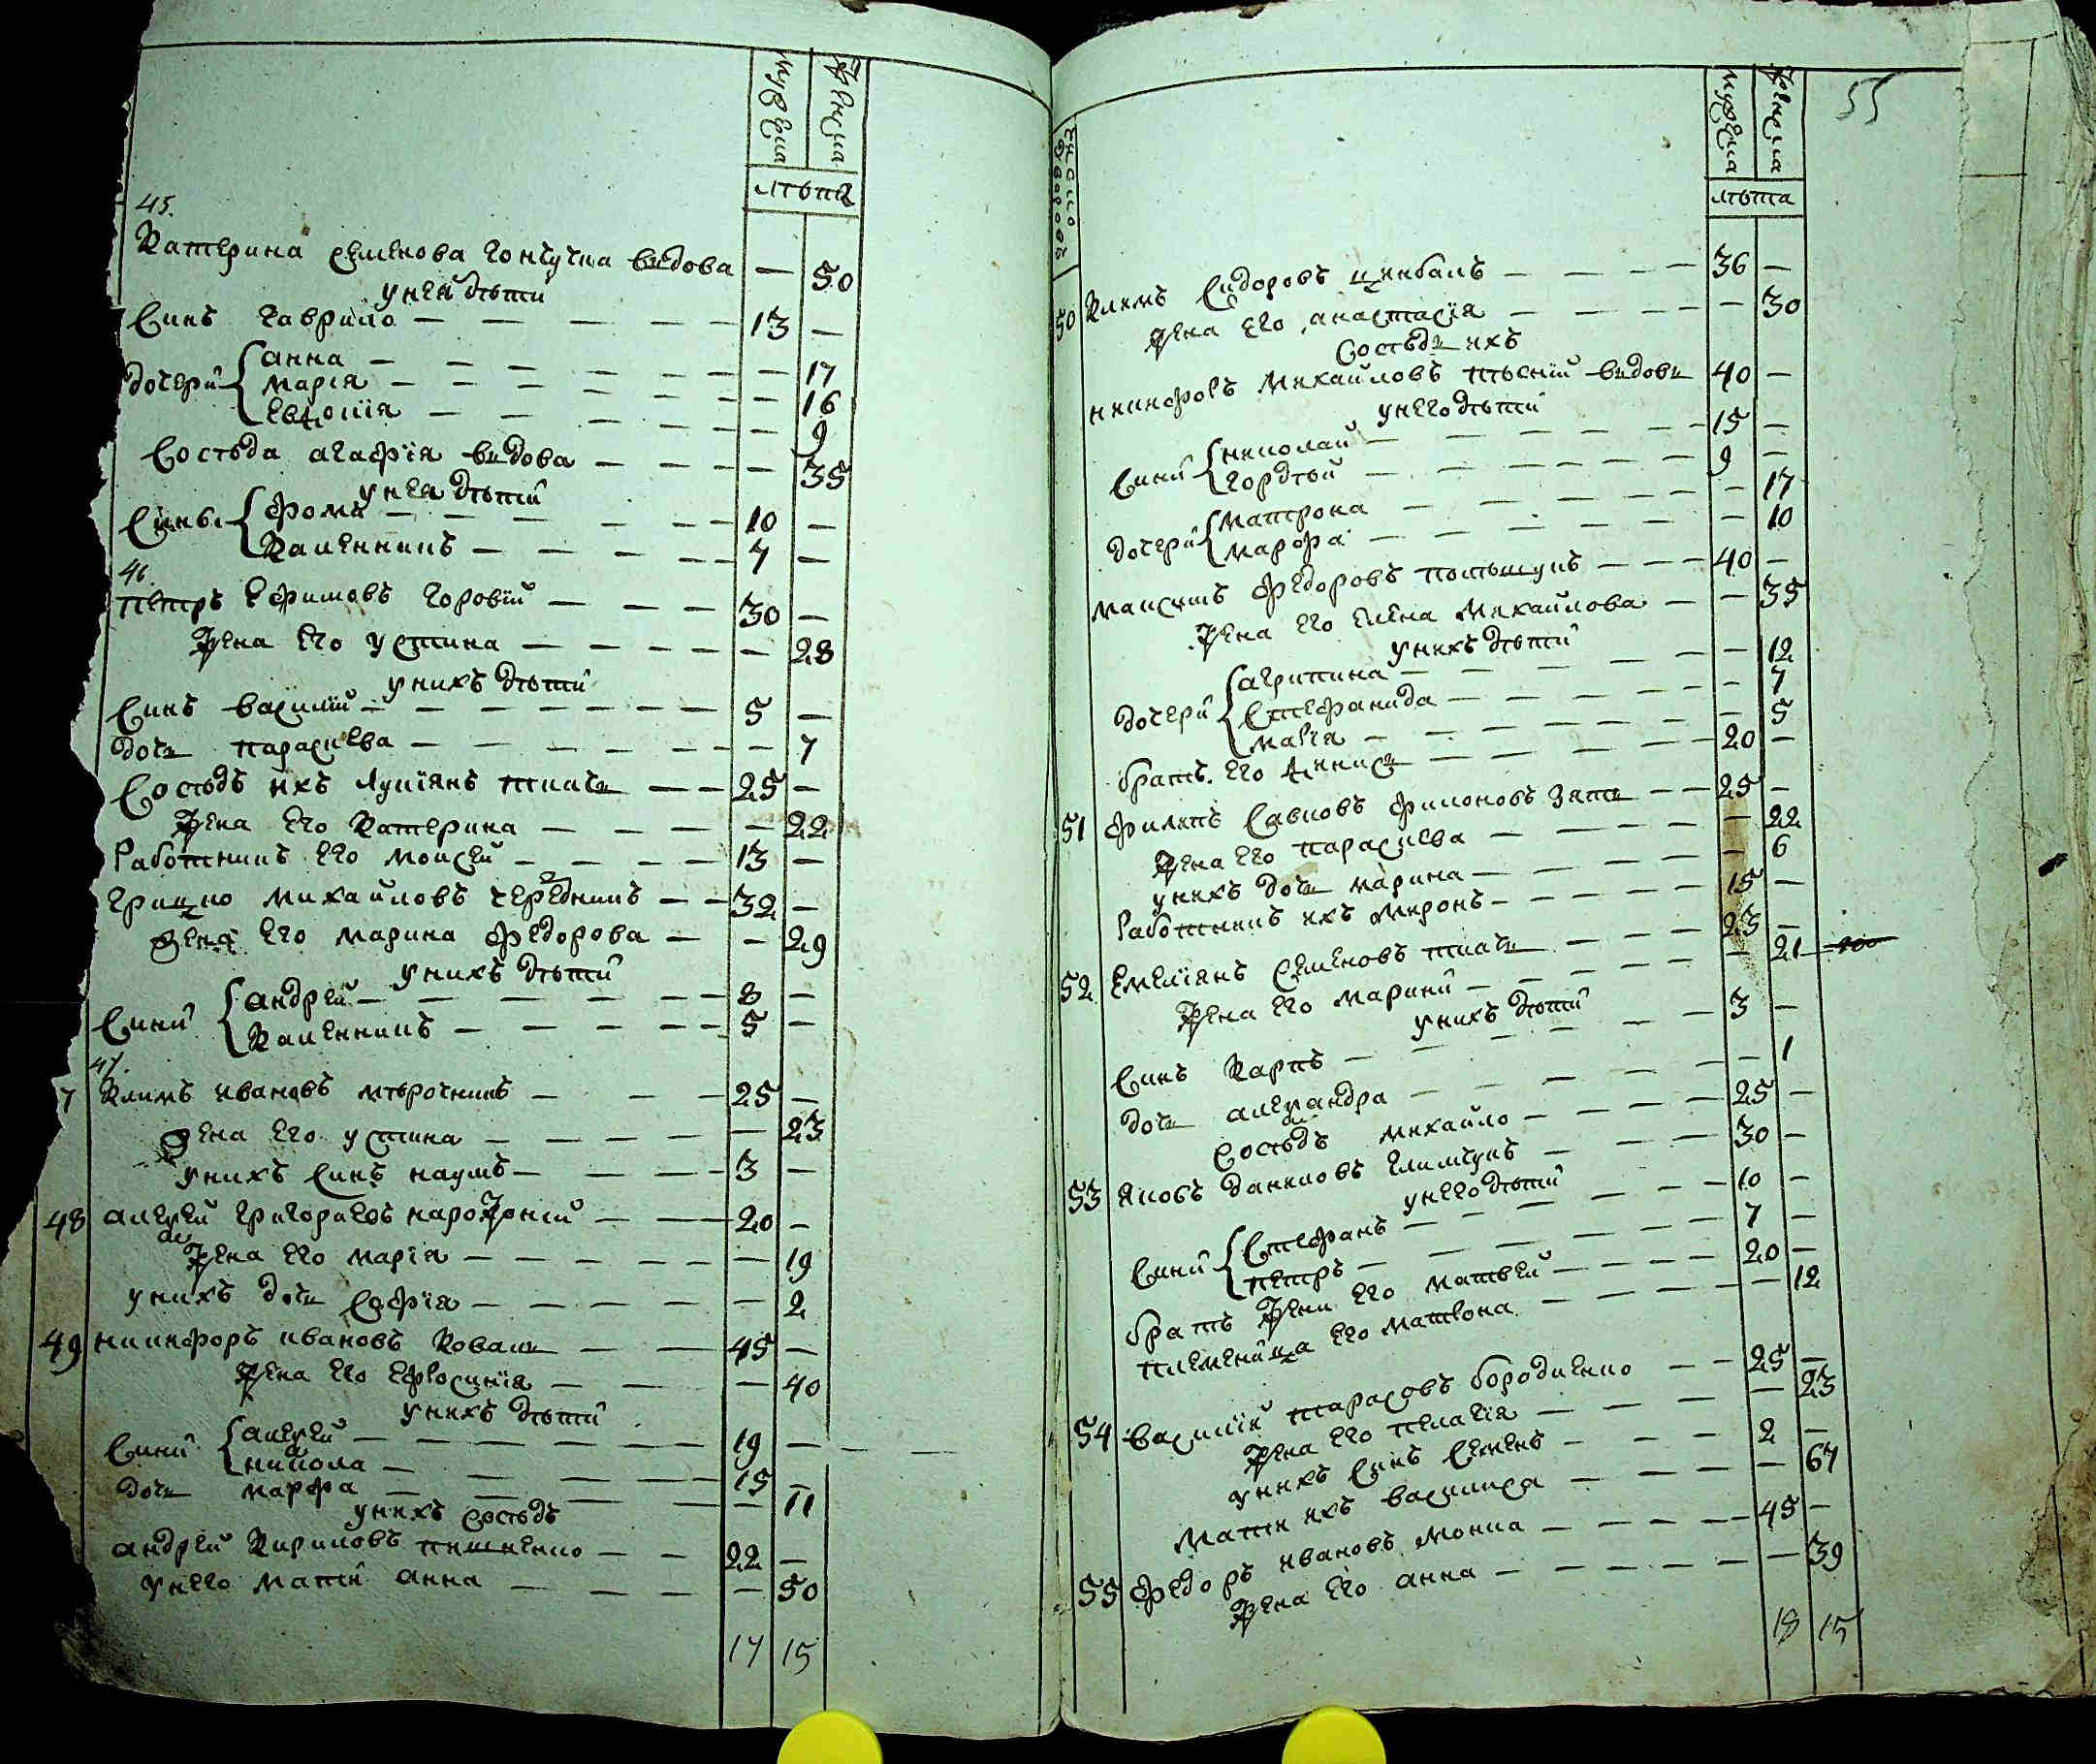 мужеска
женска
лѣта
45.
Катерина Семенова гончучна вдова — 50
у нея дѣти
Синъ Гаврило — 13 —
дочери Анна — 17
Марія — 16
Евдокія — 9
Сосѣда Агафія вдова — 35
у нея дѣти
Сины Фома — 10 —
Каленникъ — 7 —
46.
Петръ Ефимовъ Боровій — 30 —
Жена его Устина — 28
у нихъ дѣти
Синъ Василій — 5 —
дочь Парасиева — 7
Сосѣдъ ихъ Лукіянъ ткачь — 25 —
Жена его Катерина — 22
Работникъ его Моисей — 13 —
Грицко Михайловъ Чередникъ — 32 —
Жена его Марина Федорова — 29
у нихъ дѣти
Сини Андрей — 8 —
Каленникъ — 5 —
47.
7 Климъ Ивановъ Мѣрочникъ — 25 —
Жена его Устина — 23
у нихъ Синъ Наумъ — 3 —
48 Алексей Григориевъ — 20 —
Жена его Марія — 19
у нихъ дочь Софія — 2
49 Никифоръ Ивановъ Коваль — 45 —
Жена его Ефросинія — 40
у нихъ дѣти
Сини Алексей — 19 —
Никола — 15 —
дочь Марфа — 11
у нихъ сосѣдъ
Андрей Кириловъ — 22 —
у него мати Анна — 50
17 15
55
число дворовъ
мужеска
женска
лѣта
50 Климъ Сидоровъ Цимбалъ — 36 —
Жена его Анастасія — 30
Сосѣди ихъ
Никифоръ Михайловъ вдовъ — 40 —
у него дѣти
Сини Николай — 15 —
Гордѣй — 9 —
дочери Матрона — 17
Марфа — 10
Максимъ Федоровъ — 40 —
Жена его Елена Михайлова — 35
у нихъ дѣти
дочери Агрипина — 12
Стефанида — 7
Марія — 5
братъ его Денисъ — 20 —
51 Филипъ Савковъ Филоновъ зять — 25 —
Жена его Парасиева — 22
у нихъ дочь Марина — 6
Работникъ ихъ Миронъ — 15 —
52 Емеліянъ Семеновъ ткачь — 23 —
Жена его Марина — 21
у нихъ дѣти
Синъ Карпъ — 3 —
дочь Александра — 1
Сосѣдъ Михайло — 25 —
53 Яковъ Даниловъ — 30 —
у него дѣти
Сини Стефанъ — 10 —
Петръ — 7 —
братъ жени его Матвей — 20 —
племеница его Матрона — 12
54 Василій Тарасовъ Бородиенко — 25 —
Жена его Пелагія — 23
у нихъ Синъ Семенъ — 2 —
Мати ихъ Василиса — 67
55 Федоръ Ивановъ — 45 —
Жена его Анна — 39
18 15